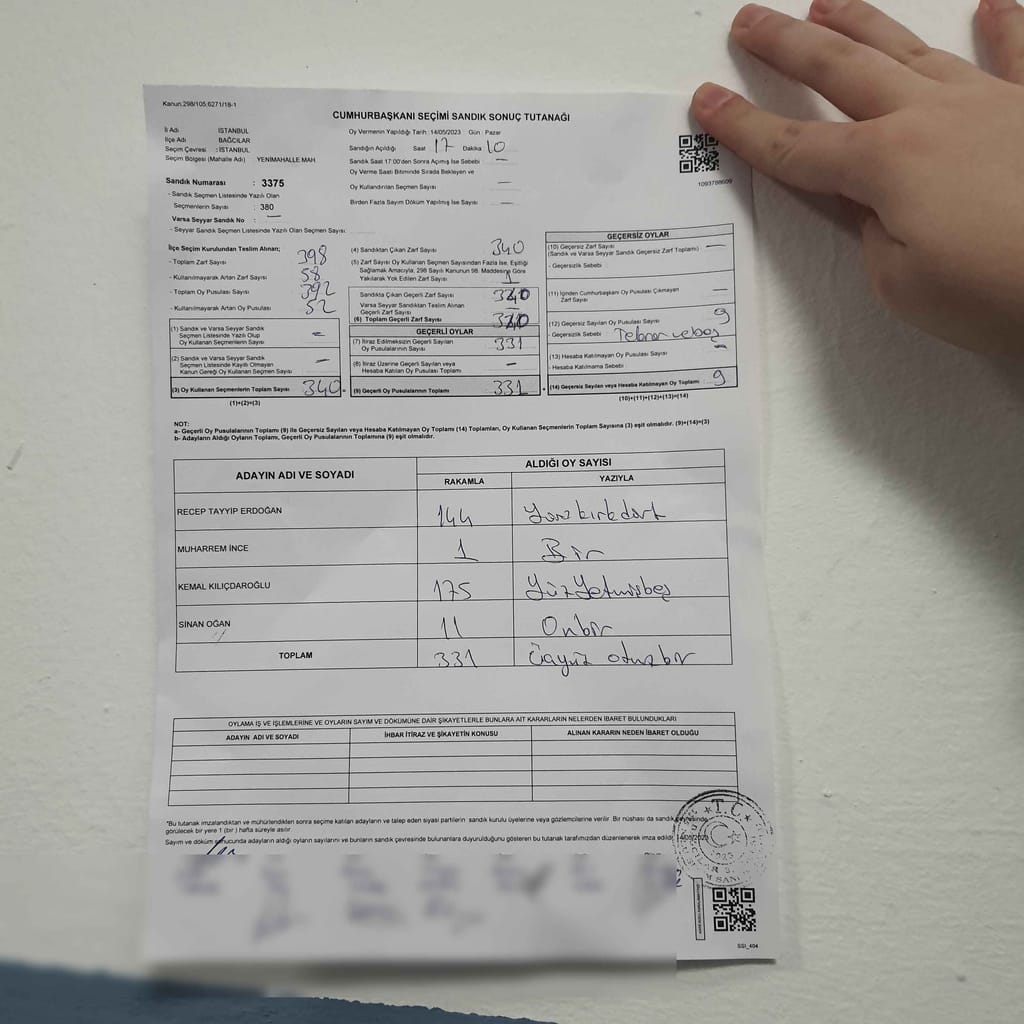 Kanun:298/105;6271/18-1
CUMHURBAŞKANI SEÇİMİ SANDIK SONUÇ TUTANAĞI
İl Adı İSTANBUL
İlçe Adı BAĞCILAR
Seçim Çevresi : İSTANBUL
Seçim Bölgesi (Mahalle Adı) YENİMAHALLE MAH
Oy Vermenin Yapıldığı Tarih :14/05/2023 Gün Pazar
Sandığın Açıldığı Saat 17 Dakika 10
Sandık Saat 17:00'den Sonra Açılmış İse Sebebi —
Oy Verme Saati Bitiminde Sırada Bekleyen ve
Oy Kullandırılan Seçmen Sayısı —
Birden Fazla Sayım Döküm Yapılmış İse Sayısı —
1093788609
Sandık Numarası : 3375
- Sandık Seçmen Listesinde Yazılı Olan
Seçmenlerin Sayısı : 380
Varsa Seyyar Sandık No : —
- Seyyar Sandık Seçmen Listesinde Yazılı Olan Seçmen Sayısı:
İlçe Seçim Kurulundan Teslim Alınan;
- Toplam Zarf Sayısı 398
- Kullanılmayarak Artan Zarf Sayısı 58
- Toplam Oy Pusulası Sayısı 392
- Kullanılmayarak Artan Oy Pusulası 52
(1) Sandık ve Varsa Seyyar Sandık
Seçmen Listesinde Yazılı Olup
Oy Kullanan Seçmen Sayısı —
(2) Sandık ve Varsa Seyyar Sandık
Seçmen Listesinde Kayıtlı Olmayan
Kanun Gereği Oy Kullanan Seçmen Sayısı —
(3) Oy Kullanan Seçmenlerin Toplam Sayısı 340
(1)+(2)=(3)
(4) Sandıktan Çıkan Zarf Sayısı 340
(5) Zarf Sayısı Oy Kullanan Seçmen Sayısından Fazla İse, Eşitliği
Sağlamak Amacıyla, 298 Sayılı Kanunun 98. Maddesine Göre
Yakılarak Yok Edilen Zarf Sayısı
Sandıkta Çıkan Geçerli Zarf Sayısı 340
Varsa Seyyar Sandıktan Teslim Alınan
Geçerli Zarf Sayısı —
(6) Toplam Geçerli Zarf Sayısı 340
GEÇERLİ OYLAR
(7) İtiraz Edilmeksizin Geçerli Sayılan
Oy Pusulalarının Sayısı 331
(8) İtiraz Üzerine Geçerli Sayılan veya
Hesaba Katılan Oy Pusulası Toplamı —
(9) Geçerli Oy Pusulalarının Toplamı 331
GEÇERSİZ OYLAR
(10) Geçersiz Zarf Sayısı —
(Sandık ve Varsa Seyyar Sandık Geçersiz Zarf Toplamı)
- Geçersizlik Sebebi :
(11) İçinden Cumhurbaşkanı Oy Pusulası Çıkmayan
Zarf Sayısı —
(12) Geçersiz Sayılan Oy Pusulası Sayısı 9
- Geçersizlik Sebebi :
(13) Hesaba Katılmayan Oy Pusulası Sayısı —
- Hesaba Katılmama Sebebi :
(14) Geçersiz Sayılan veya Hesaba Katılmayan Oy Toplamı 9
(10)+(11)+(12)+(13)=(14)
NOT:
a- Geçerli Oy Pusulalarının Toplamı (9) ile Geçersiz Sayılan veya Hesaba Katılmayan Oy Toplamı (14) Toplamları, Oy Kullanan Seçmenlerin Toplam Sayısına (3) eşit olmalıdır. (9)+(14)=(3)
b- Adayların Aldığı Oyların Toplamı, Geçerli Oy Pusulalarının Toplamına (9) eşit olmalıdır.
ADAYIN ADI VE SOYADI ALDIĞI OY SAYISI
RAKAMLA YAZIYLA
RECEP TAYYİP ERDOĞAN 144 Yüzkırkdört
MUHARREM İNCE 1 Bir
KEMAL KILIÇDAROĞLU 175 YüzYetmişbeş
SİNAN OĞAN 11 Onbir
TOPLAM 331 Üçyüz otuzbir
OYLAMA İŞ VE İŞLEMLERİNE VE OYLARIN SAYIM VE DÖKÜMÜNE DAİR ŞİKAYETLERLE BUNLARA AİT KARARLARIN NELERDEN İBARET BULUNDUKLARI
ADAYIN ADI VE SOYADI İHBAR İTİRAZ VE ŞİKAYETİN KONUSU ALINAN KARARIN NEDEN İBARET OLDUĞU
*Bu tutanak imzalandıktan ve mühürlendikten sonra seçime katılan adayların ve talep eden siyasi partilerin sandık kurulu üyelerine veya gözlemcilerine verilir. Bir nüshası da sandık çevresinde
görülecek bir yere 1 (bir ) hafta süreyle asılır
Sayım ve döküm sonucunda adayların aldığı oyların sayılarını ve bunların sandık çevresinde bulunanlara duyurulduğunu gösteren bu tutanak tarafımızdan düzenlenerek imza edildi. 14/05/2023
T.C.
1923
SSI_404